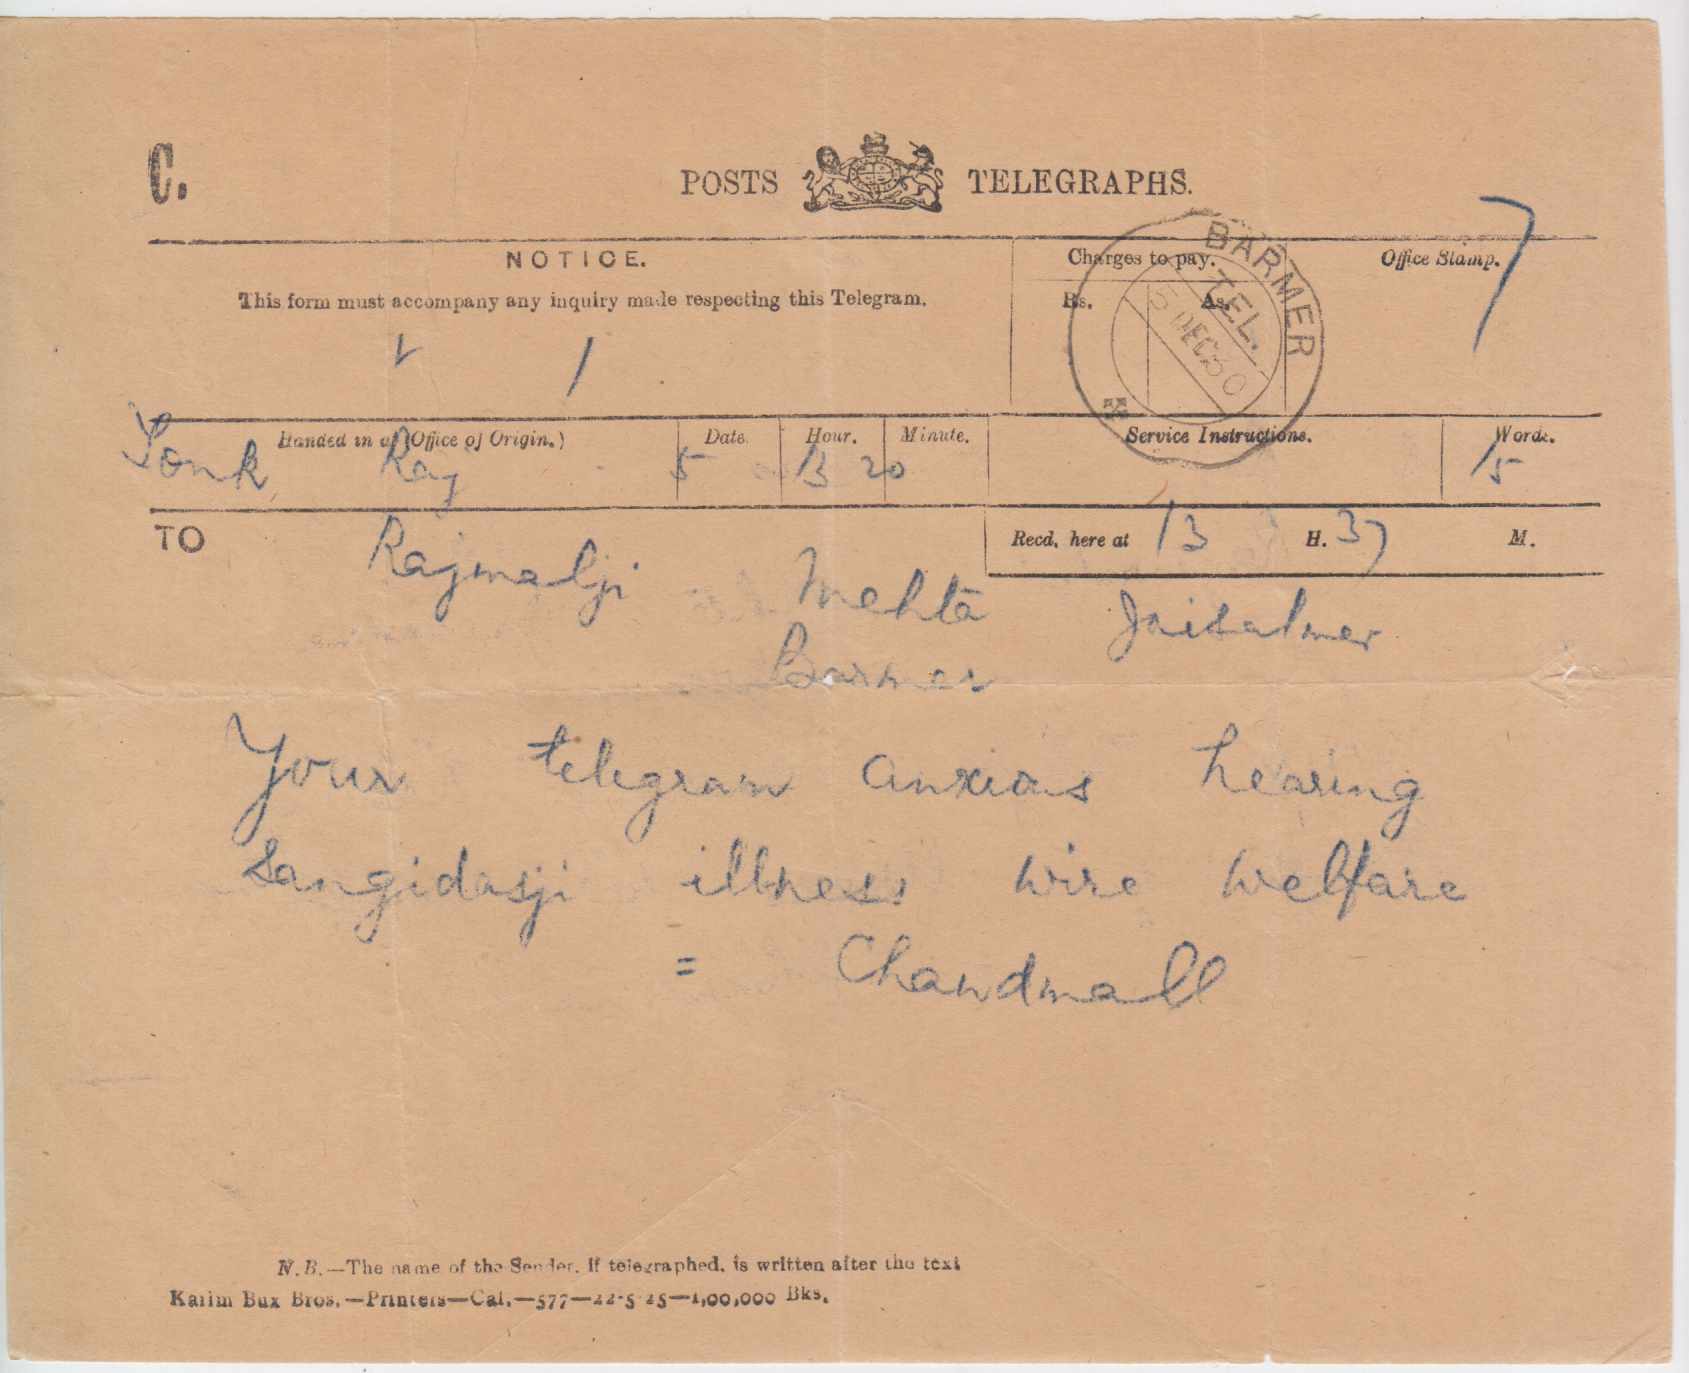 C.
POSTS TELEGRAPHS.
NOTICE.
This form must accompany any inquiry made respecting this Telegram.
Charges to pay.
Rs. As.
Office Stamp.
7
BARMER
TEL.
5 DEC 30
Handed in at (Office of Origin.) Date. Hour. Minute. Service Instructions. Words.
Tonk Raj 5 13 20 15
TO
Recd. here at 13 H. 37 M.
Rajmalji Mehta Jaisalmer
Barmer
Your telegram anxious hearing
Sangidasji illness wire welfare
= Chandmall
N.B.—The name of the Sender, If telegraphed, is written after the text
Karim Bux Bros.—Printers—Cal.—577—22-5-25—1,00,000 Bks.